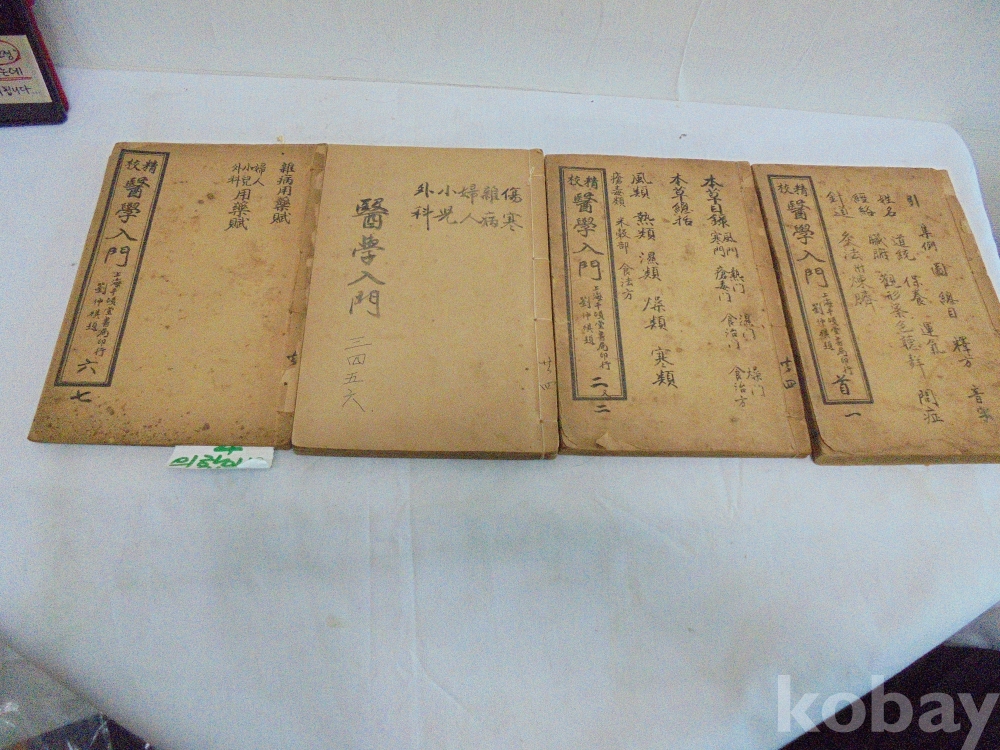 精校
醫學入門
上海千頃堂書局印行
劉仲棋題
六
七
雜病用藥賦
婦人
小兒
外科
用藥賦
傷寒
雜病
婦人
小兒
外科
醫学入門
三四五六
精校
醫學入門
上海千頃堂書局印行
二
本草目錄
風門 熱門 濕門 燥門
寒門 瘡毒門 食治門 食治方
本草總括
風類 熱類 濕類 燥類 寒類
瘡毒類 米穀部 食治方
精校
醫學入門
上海千頃堂書局印行
首
一
引 集例 圖 總目 釋方 音字
姓名 道統 保養 運氣
經絡 臟腑 觀形察色 問症
針法 灸法
kobay